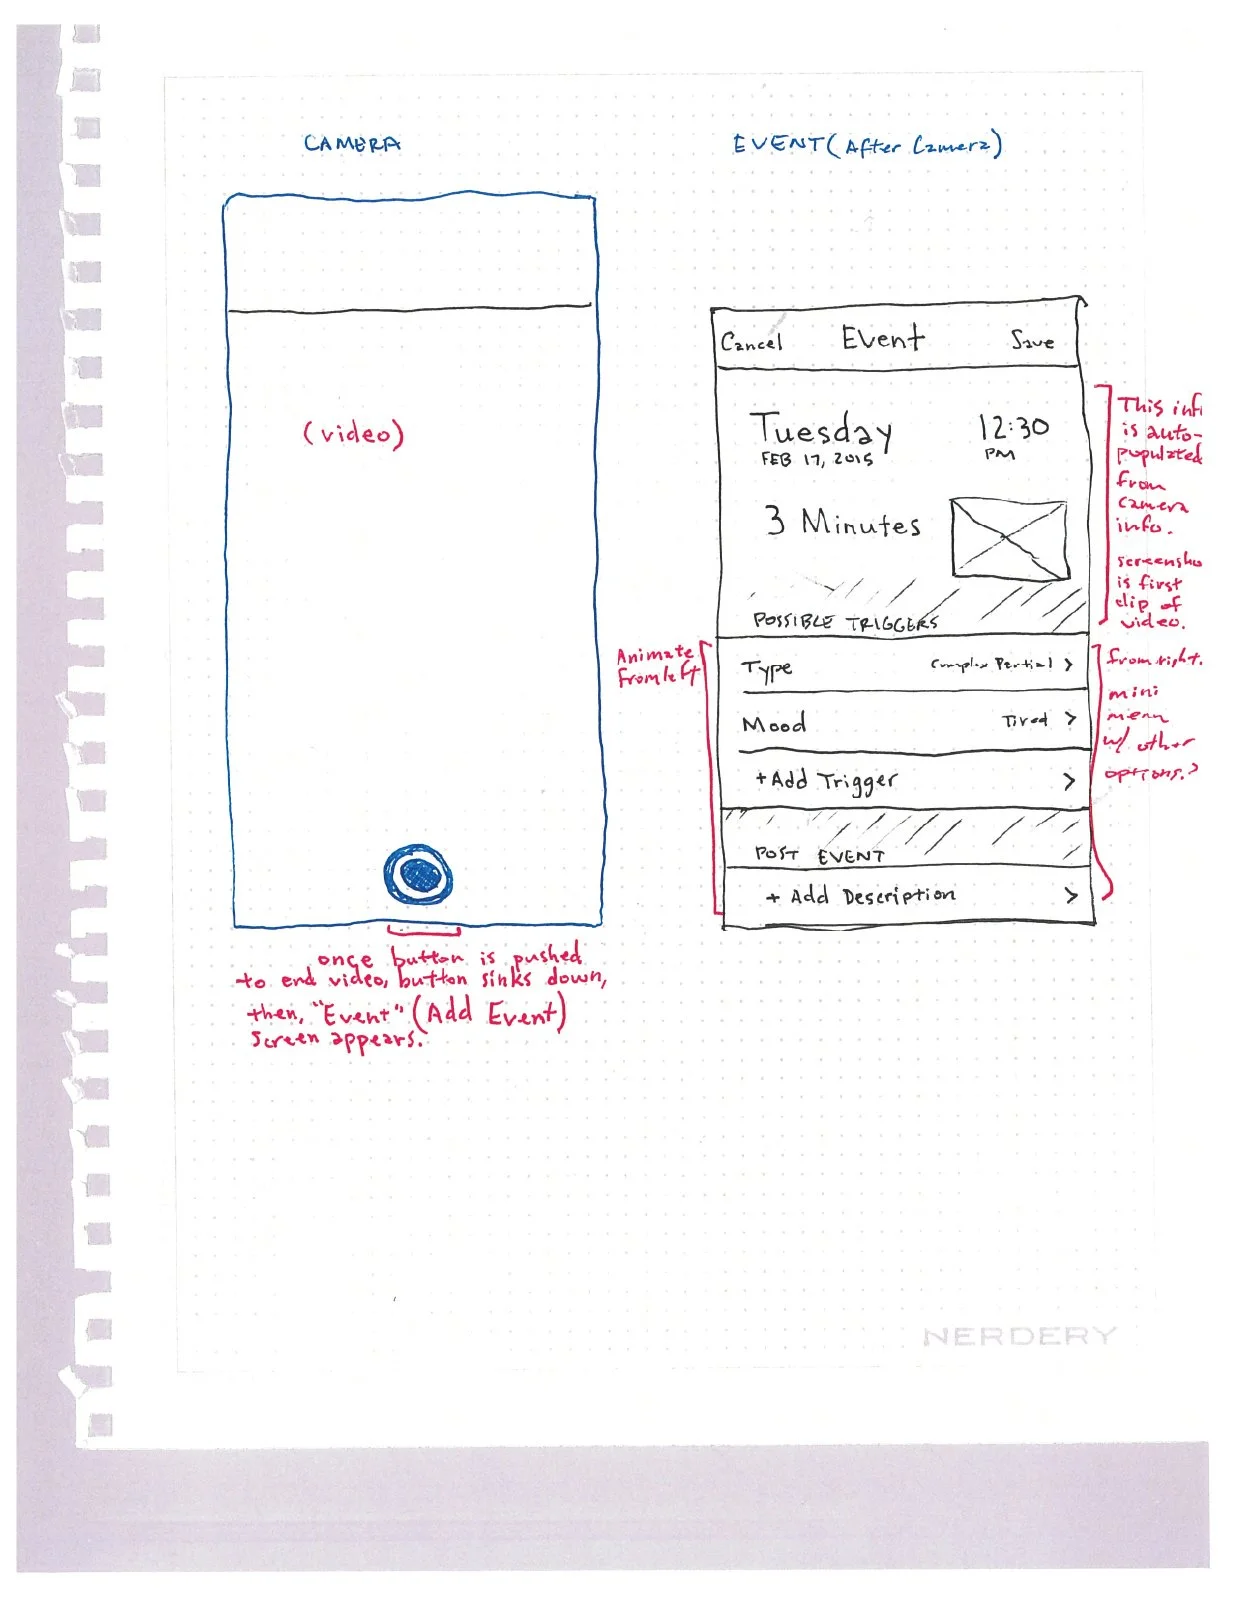 CAMERA
(video)
once button is pushed
to end video, button sinks down,
then, "Event" (Add Event)
screen appears.
EVENT (After Camera)
Cancel Event Save
Tuesday 12:30
FEB 17, 2015 PM
3 Minutes
POSSIBLE TRIGGERS
Type Complex Partial >
Mood Tired >
+ Add Trigger >
POST EVENT
+ Add Description >
Animate
from left
This inf
is auto-
populated
from
camera
info.
screensho
is first
clip of
video.
from right.
mini
menu
w/ other
options?
NERDERY